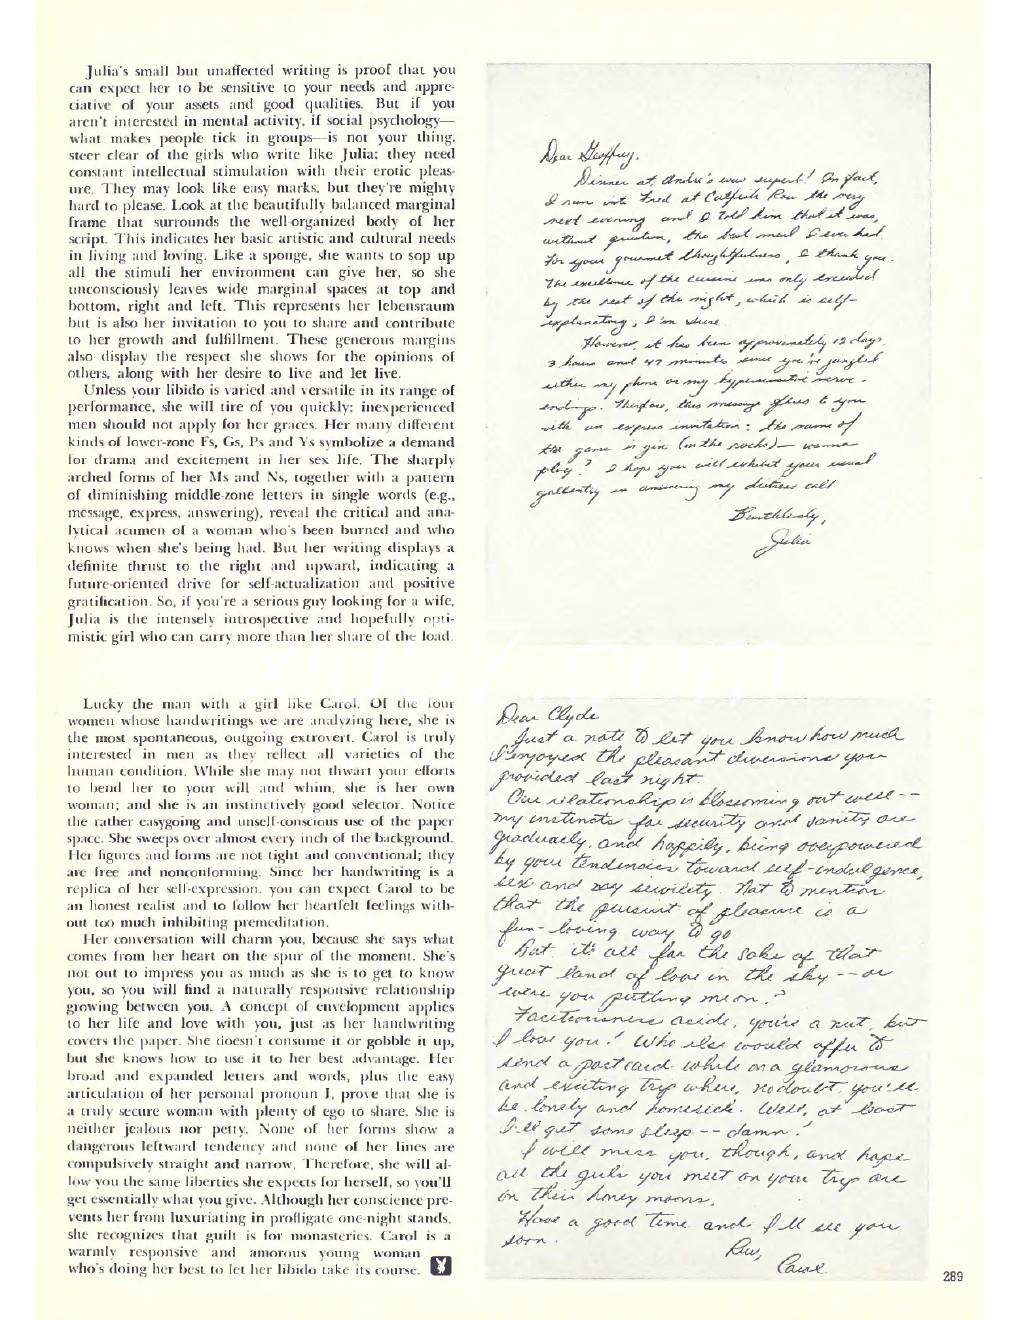 Julia's small but unaffected writing is proof that you
can expect her to be sensitive to your needs and appre-
ciative of your assets and good qualities. But if you
aren't interested in mental activity, if social psychology—
what makes people tick in groups—is not your thing,
steer clear of the girls who write like Julia; they need
constant intellectual stimulation with their erotic pleas-
ure. They may look like easy marks, but they're mighty
hard to please. Look at the beautifully balanced marginal
frame that surrounds the well-organized body of her
script. This indicates her basic artistic and cultural needs
in living and loving. Like a sponge, she wants to sop up
all the stimuli her environment can give her, so she
unconsciously leaves wide marginal spaces at top and
bottom, right and left. This represents her lebensraum
but is also her invitation to you to share and contribute
to her growth and fulfillment. These generous margins
also display the respect she shows for the opinions of
others, along with her desire to live and let live.
Unless your libido is varied and versatile in its range of
performance, she will tire of you quickly; inexperienced
men should not apply for her graces. Her many different
kinds of lower-zone Fs, Gs, Ps and Ys symbolize a demand
for drama and excitement in her sex life. The sharply
arched forms of her Ms and Ns, together with a pattern
of diminishing middle-zone letters in single words (e.g.,
message, express, answering), reveal the critical and ana-
lytical acumen of a woman who's been burned and who
knows when she's being had. But her writing displays a
definite thrust to the right and upward, indicating a
future-oriented drive for self-actualization and positive
gratification. So, if you're a serious guy looking for a wife,
Julia is the intensely introspective and hopefully opti-
mistic girl who can carry more than her share of the load.
Dear Geoffrey,
Dinner at André's was superb! In fact,
I ran into Fred at Catfish Row the very
next evening and I told him that it was,
without question, the best meal I ever had.
For your gourmet thoughtfulness, I thank you.
The excellence of the cuisine was only exceeded
by the rest of the night, which is self-
explanatory, I'm sure.
However, it has been approximately 12 days,
3 hours and 47 minutes since you've jangled
either my phone or my hypersensitive nerve-
endings. Therefore, this message flies to you
with an express invitation: the name of
the game is gin (on the rocks)— wanna
play? I hope you will exhibit your usual
gallantry in answering my distress call
Breathlessly,
Julia
Lucky the man with a girl like Carol. Of the four
women whose handwritings we are analyzing here, she is
the most spontaneous, outgoing extrovert. Carol is truly
interested in men as they reflect all varieties of the
human condition. While she may not thwart your efforts
to bend her to your will and whim, she is her own
woman; and she is an instinctively good selector. Notice
the rather easygoing and unself-conscious use of the paper
space. She sweeps over almost every inch of the background.
Her figures and forms are not tight and conventional; they
are free and nonconforming. Since her handwriting is a
replica of her self-expression, you can expect Carol to be
an honest realist and to follow her heartfelt feelings with-
out too much inhibiting premeditation.
Her conversation will charm you, because she says what
comes from her heart on the spur of the moment. She's
not out to impress you as much as she is to get to know
you, so you will find a naturally responsive relationship
growing between you. A concept of envelopment applies
to her life and love with you, just as her handwriting
covers the paper. She doesn't consume it or gobble it up,
but she knows how to use it to her best advantage. Her
broad and expanded letters and words, plus the easy
articulation of her personal pronoun I, prove that she is
a truly secure woman with plenty of ego to share. She is
neither jealous nor petty. None of her forms show a
dangerous leftward tendency and none of her lines are
compulsively straight and narrow. Therefore, she will al-
low you the same liberties she expects for herself, so you'll
get essentially what you give. Although her conscience pre-
vents her from luxuriating in profligate one-night stands,
she recognizes that guilt is for monasteries. Carol is a
warmly responsive and amorous young woman
who's doing her best to let her libido take its course.
Dear Clyde
Just a note to let you know how much
I enjoyed the pleasant diversions you
provided last night.
Our relationship is blossoming out well--
my instincts for security and vanity are
gradually, and happily, being overpowered
by your tendencies toward self-indulgence,
sex and servility. Not to mention
that the pursuit of pleasure is a
fun-loving way to go
But it's all for the sake of that
great land of love in the sky -- or
were you putting me on?
Facetiousness aside, you're a nut, but
I love you! Who else would offer to
send a postcard while on a glamorous
and exciting trip where, no doubt, you'll
be lonely and homesick. Well, at least
I'll get some sleep -- damn!
I will miss you, though, and hope
all the girls you meet on your trip are
on their honeymoons.
Have a good time and I'll see you
soon.
Luv,
Carol
289